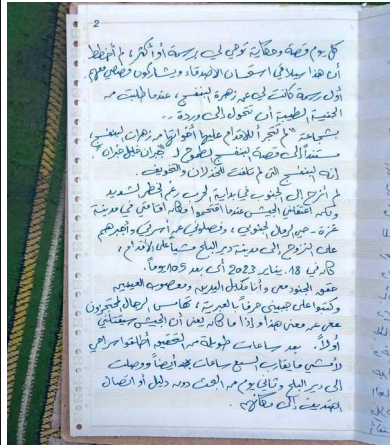 2
كل يوم قصة وحكاية توحي لي برسمة أو أكثر، لم أخطط
أن هذا سيلاقي استحسان الأصدقاء ويشاركون قصصي معهم.
أول رسمة كانت لي عن زهرة البنفسج، عندما طلبت من
الجنية الطيبة أن تتحول إلى وردة ..
بشجاعة "لم تتجرأ للإقدام عليها أخواتها من زهرات البنفسج،
مستنداً إلى قصة البنفسج الطموح لـ "جبران خليل جبران".
إنه البنفسج التي لم تلتفت للخذلان والتخويف.
لم أنزح إلى الجنوب في بداية الحرب رغم الخطر الشديد
وتم اعتقلني الجيش عندما اقتحموا مكان إقامتي في مدينة
غزة - حي الرمال الجنوبي، وفصلوني عن أسرتي وأجبرهم
على النزوح إلى مدينة دير البلح مشياً على الأقدام،
كان في 18. يناير 2023 أي بعد 105 يوماً.
حقق الجنود معي وأنا مكبل اليدين ومعصوب العينين
وكتبوا على جبيني حرفاً بالعبرية، تهامس الرجال المحتجزون
معي عن معنى هذا وإذا ما كان يعني أن الجيش سيقتلني
أولاً. بعد ساعات طويلة من التحقيق أطلقوا سراحي
لأمشي ما يقارب السبع ساعات بعد أيضاً ووصلت
إلى دير البلح وثاني يوم من البحث دون دليل أو اتصال
اهتديت إلى مكانهم.